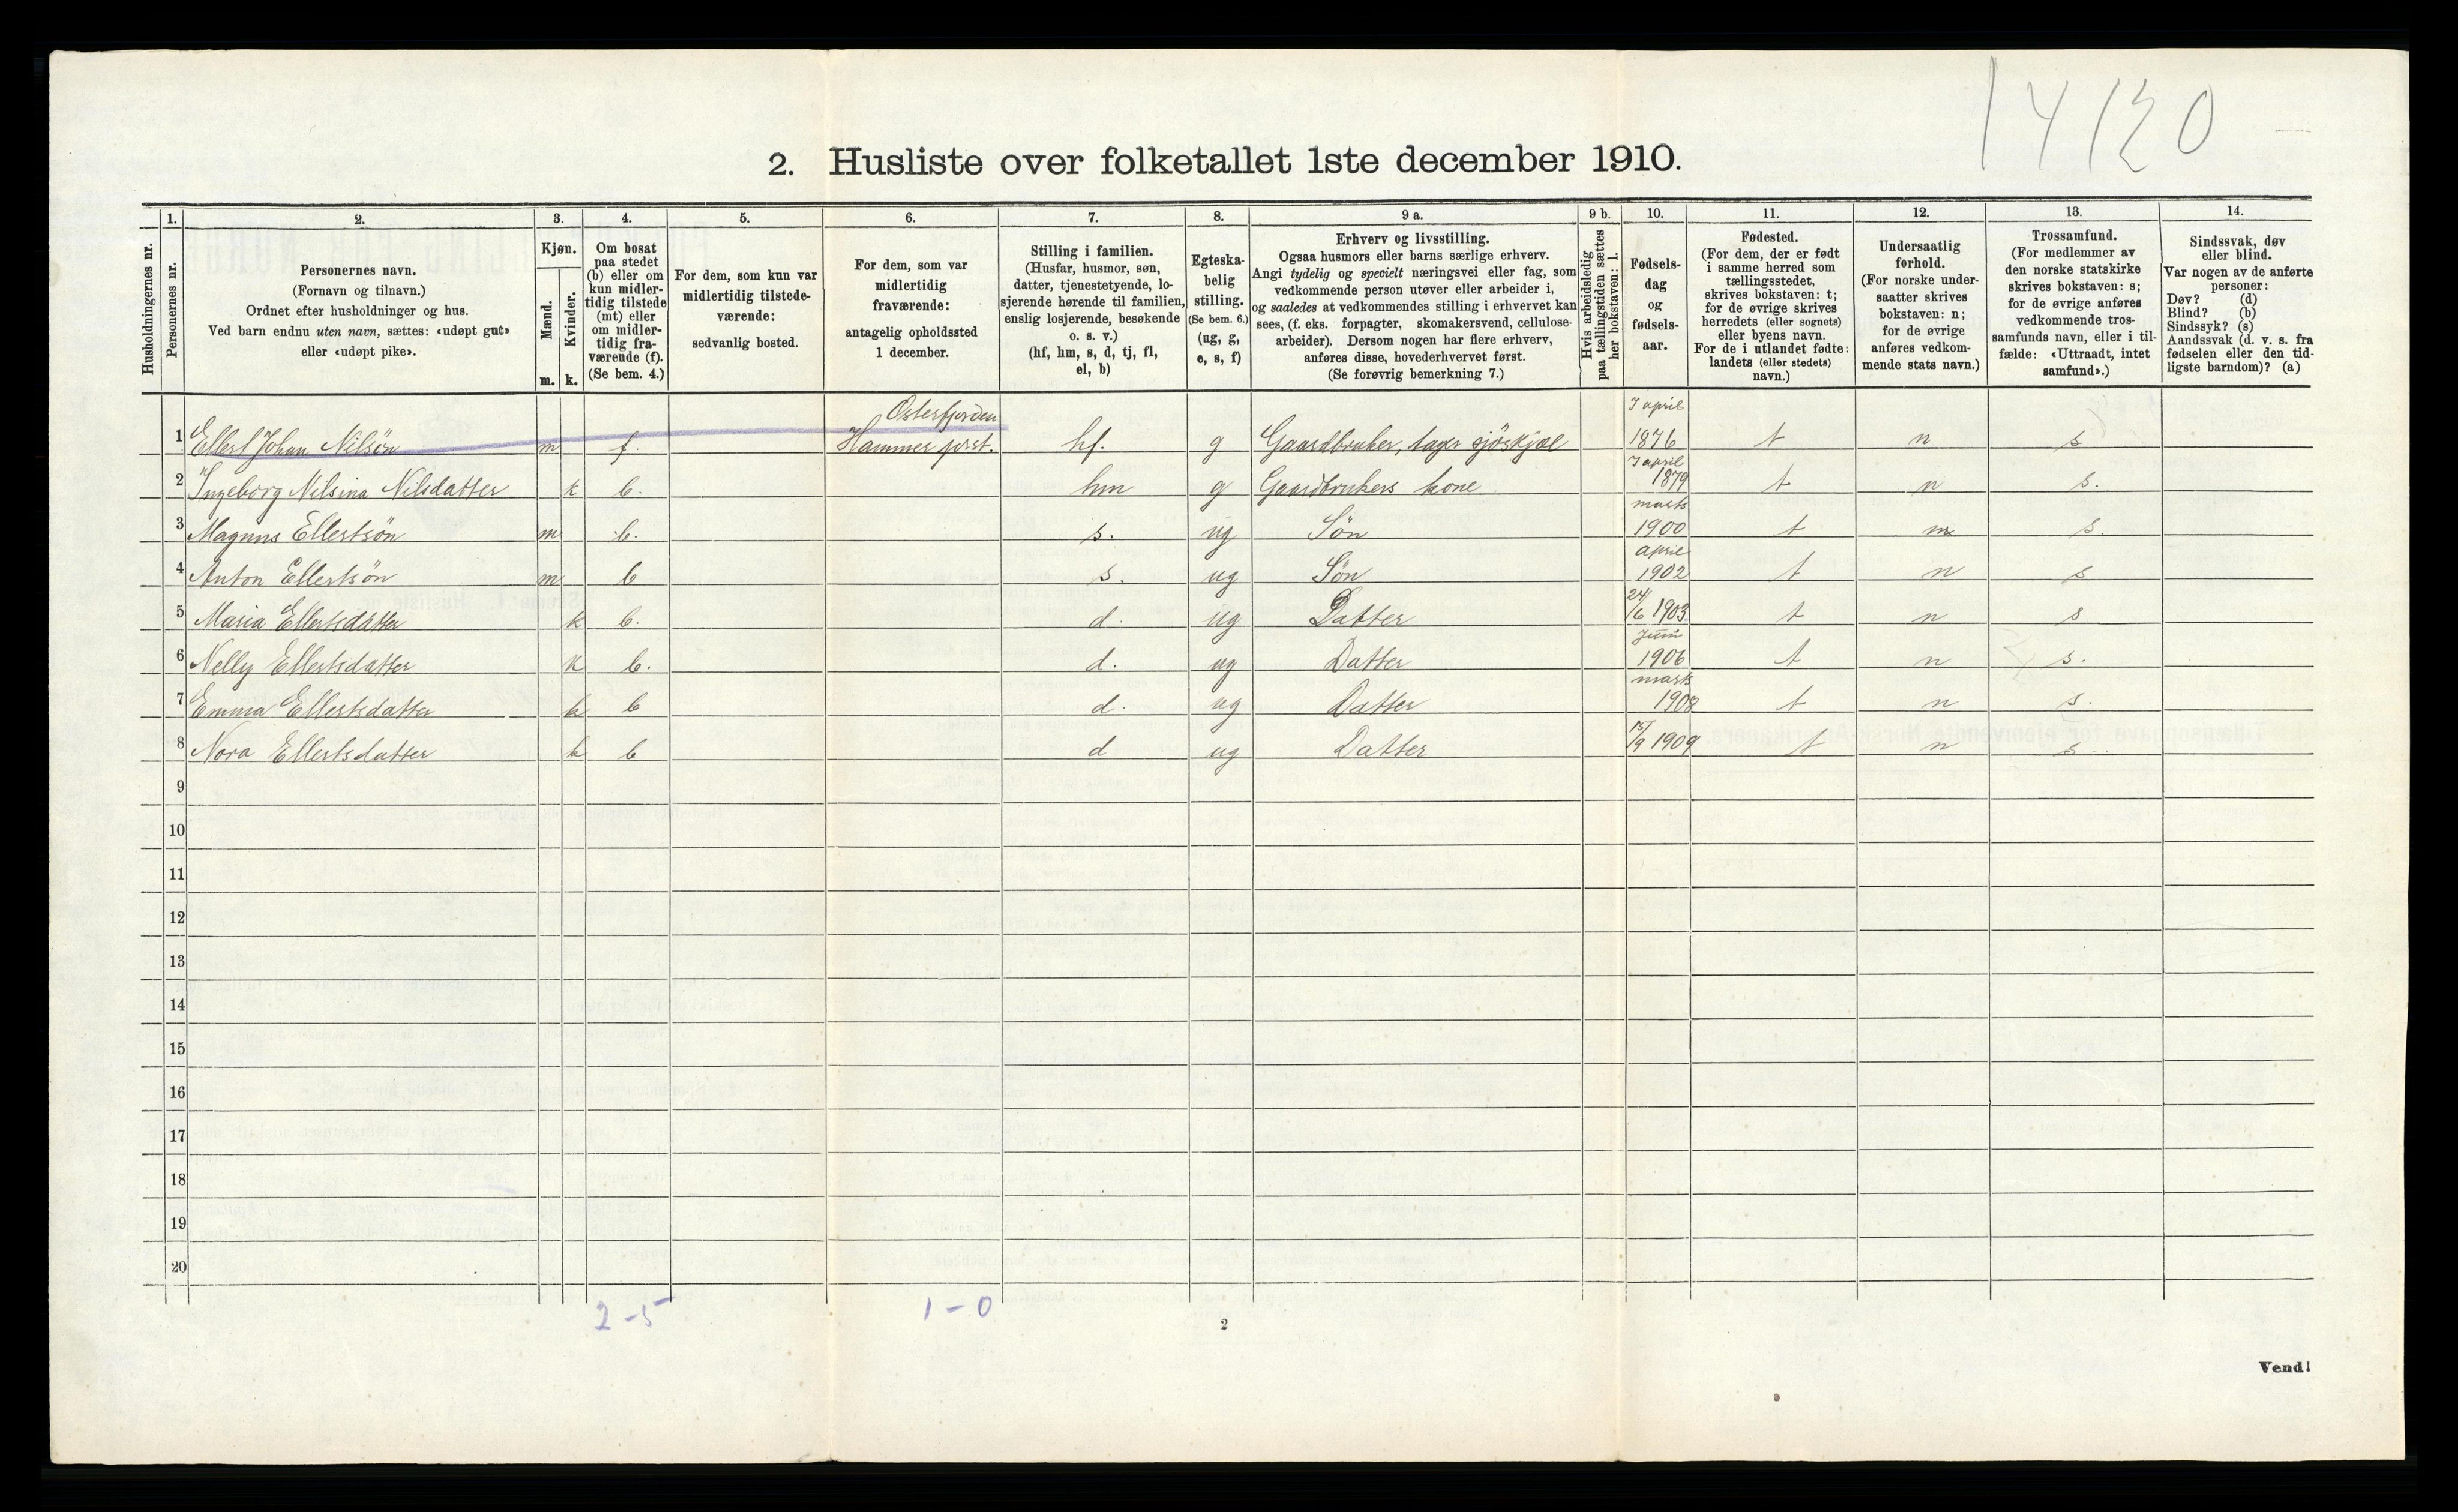 14120
2. Husliste over folketallet 1ste december 1910.
Husholdningernes nr.
1. Personernes nr.
2. Personernes navn.
(Fornavn og tilnavn.)
Ordnet efter husholdninger og hus.
Ved barn endnu uten navn, sættes: «udøpt gut»
eller «udøpt pike».
3. Kjøn.
Mænd. m.
Kvinder. k.
4. Om bosat
paa stedet
(b) eller om
kun midler-
tidig tilstede
(mt) eller
om midler-
tidig fra-
værende (f).
(Se bem. 4.)
5. For dem, som kun var
midlertidig tilstede-
værende:
sedvanlig bosted.
6. For dem, som var
midlertidig
fraværende:
antagelig opholdssted
1 december.
7. Stilling i familien.
(Husfar, husmor, søn,
datter, tjenestetyende, lo-
sjerende hørende til familien,
enslig losjerende, besøkende
o. s. v.)
(hf, hm, s, d, tj, fl,
el, b)
8. Egteska-
belig
stilling.
(Se bem. 6.)
(ug, g,
e, s, f)
9 a. Erhverv og livsstilling.
Ogsaa husmors eller barns særlige erhverv.
Angi tydelig og specielt næringsvei eller fag, som
vedkommende person utøver eller arbeider i,
og saaledes at vedkommendes stilling i erhvervet kan
sees, (f. eks. forpagter, skomakersvend, cellulose-
arbeider). Dersom nogen har flere erhverv,
anføres disse, hovederhvervet først.
(Se forøvrig bemerkning 7.)
9 b. Hvis arbeidsledig
paa tællingstiden sættes
her bokstaven: l.
10. Fødsels-
dag
og
fødsels-
aar.
11. Fødested.
(For dem, der er født
i samme herred som
tællingsstedet,
skrives bokstaven: t;
for de øvrige skrives
herredets (eller sognets)
eller byens navn.
For de i utlandet fødte:
landets (eller stedets)
navn.)
12. Undersaatlig
forhold.
(For norske under-
saatter skrives
bokstaven: n;
for de øvrige
anføres vedkom-
mende stats navn.)
13. Trossamfund.
(For medlemmer av
den norske statskirke
skrives bokstaven: s;
for de øvrige anføres
vedkommende tros-
samfunds navn, eller i til-
fælde: «Uttraadt, intet
samfund».)
14. Sindssvak, døv
eller blind.
Var nogen av de anførte
personer:
Døv? (d)
Blind? (b)
Sindssyk? (s)
Aandssvak (d. v. s. fra
fødselen eller den tid-
ligste barndom)? (a)
Osterfjorden 7 april
1 Ellert Johan Nilsøn m f. Hammer prst. hf. g Gaardbruker, tager sjöskjæl 1876 t n s
7 april
2 Ingeborg Nilsina Nilsdatter k b. hm g Gaardbrukers kone 1879 t n s.
marts
3 Magnus Ellertsön m b. s. ug Sön 1900 t n s.
april
4 Anton Ellertsön m b s. ug Sön 1902 t n s
5 Maria Ellertsdatter k b. d. ug Datter 24/6 1903 t n s
juni
6 Nelly Ellertsdatter k b. d. ug Datter 1906 t n s.
marts
7 Emma Ellertsdatter k b d. ug Datter 1908 t n s.
8 Nora Ellertsdatter k b d ug Datter 15/9 1909 t n s.
9
10
11
12
13
14
15
16
17
18
19
20
2-5 1-0
2
Vend!